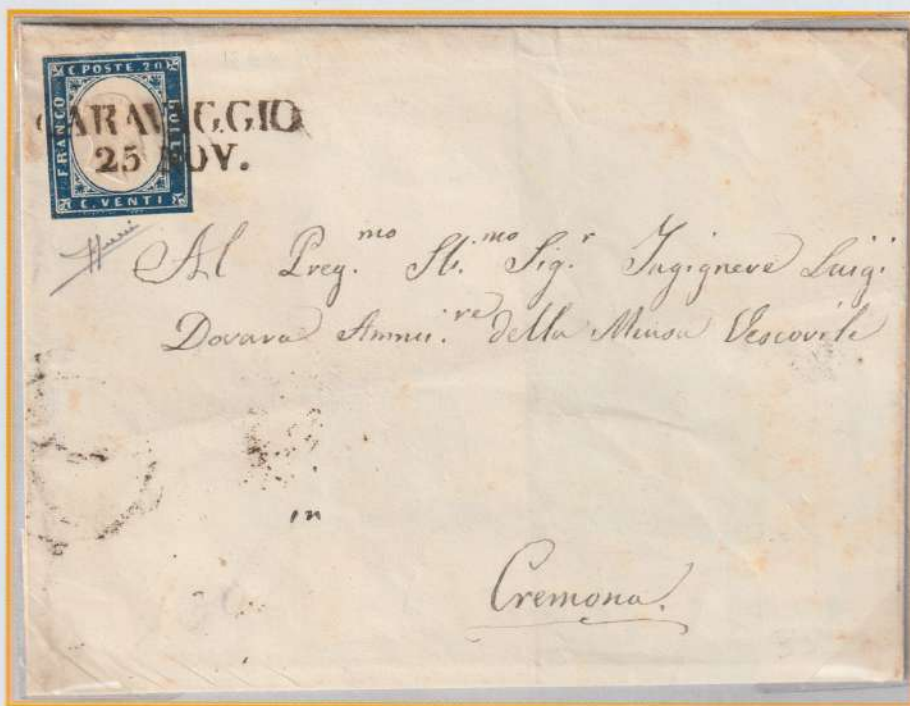 C. POSTE 20
FRANCO
BOLLO
C. VENTI
CARAVAGGIO
25 NOV.
Al Preg.mo Sti.mo Sig.r Ingignere Luigi
Dovara Ammi.re della Mensa Vescovile
in
Cremona.